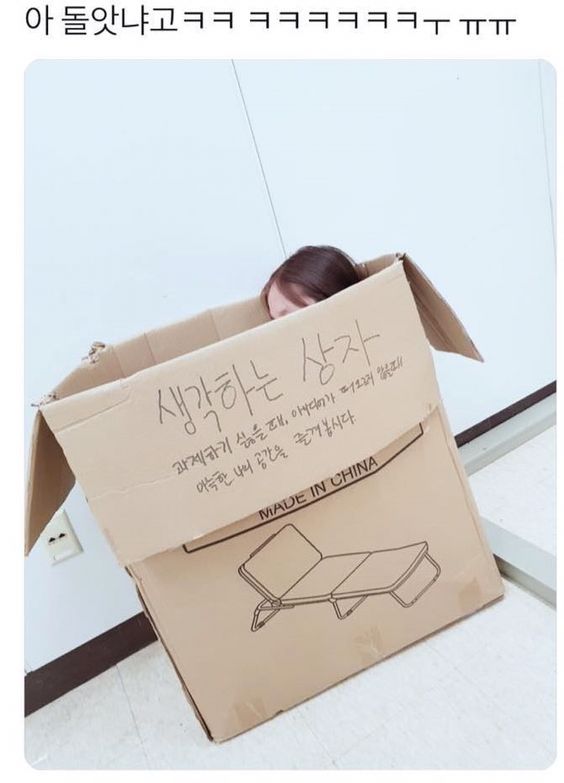 아 돌앗냐고ㅋㅋ ㅋㅋㅋㅋㅋㅋㅋㅜ ㅠㅠ
생각하는 상자
과제하기 싫을 때, 아이디어가 떠오르지 않을때
아늑한 나의 공간을 즐겨봅시다.
MADE IN CHINA